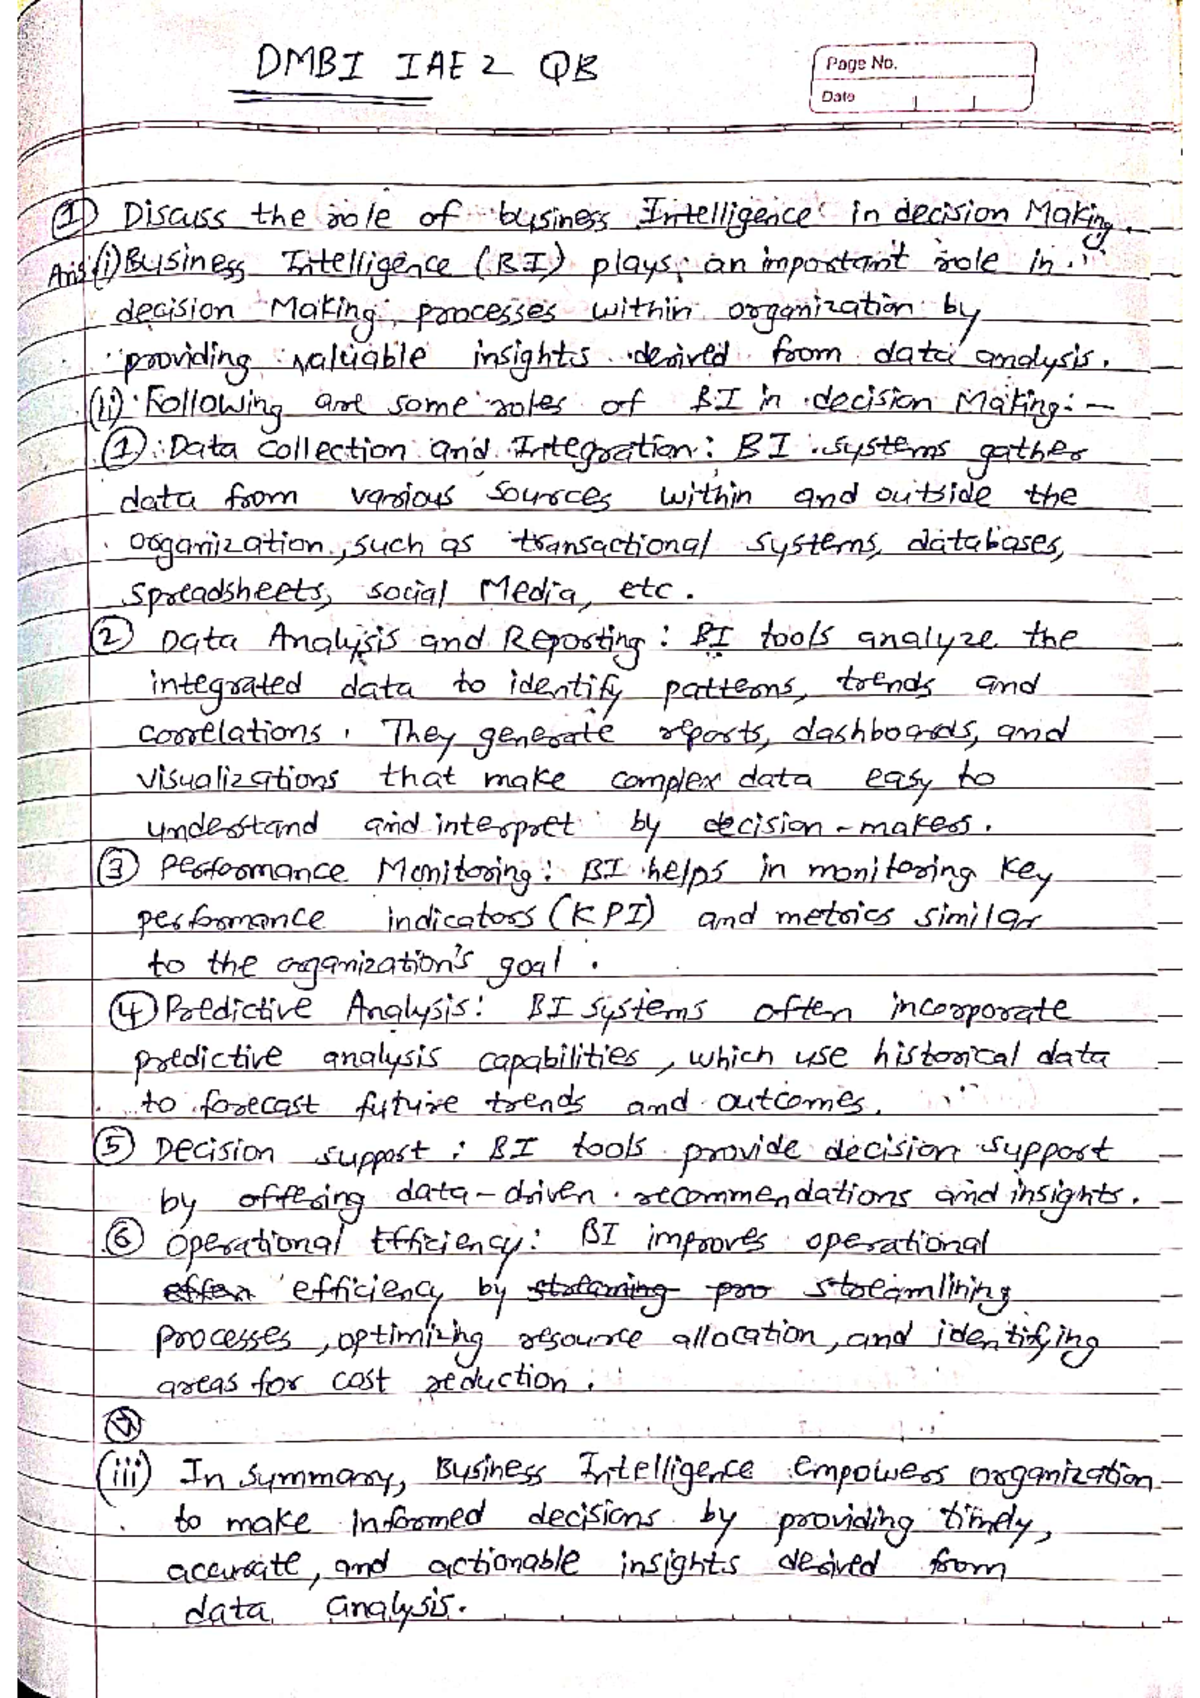 DMBI IAE2 QB
Page No.
Date
① Discuss the role of business Intelligence in decision Making.
Ans (i) Business Intelligence (BI) plays an important role in
decision Making processes within organization by
providing valuable insights derived from data analysis.
(ii) Following are some roles of BI in decision Making: -
① Data collection and Integration: BI systems gather
data from various sources within and outside the
organization, such as transactional systems, databases,
spreadsheets, social Media, etc.
② Data Analysis and Reporting: BI tools analyze the
integrated data to identify patterns, trends and
correlations. They generate reports, dashboards, and
visualizations that make complex data easy to
understand and interpret by decision-makers.
③ Performance Monitoring: BI helps in monitoring key
performance indicators (KPI) and metrics similar
to the organization's goal.
④ Predictive Analysis: BI systems often incorporate
predictive analysis capabilities, which use historical data
to forecast future trends and outcomes.
⑤ Decision support: BI tools provide decision support
by offering data-driven recommendations and insights.
⑥ Operational Efficiency: BI improves operational
efficiency by streamlining
processes, optimizing resource allocation, and identifying
areas for cost reduction.
⑦
(iii) In summary, Business Intelligence empowers organization
to make informed decisions by providing timely,
accurate, and actionable insights derived from
data analysis.